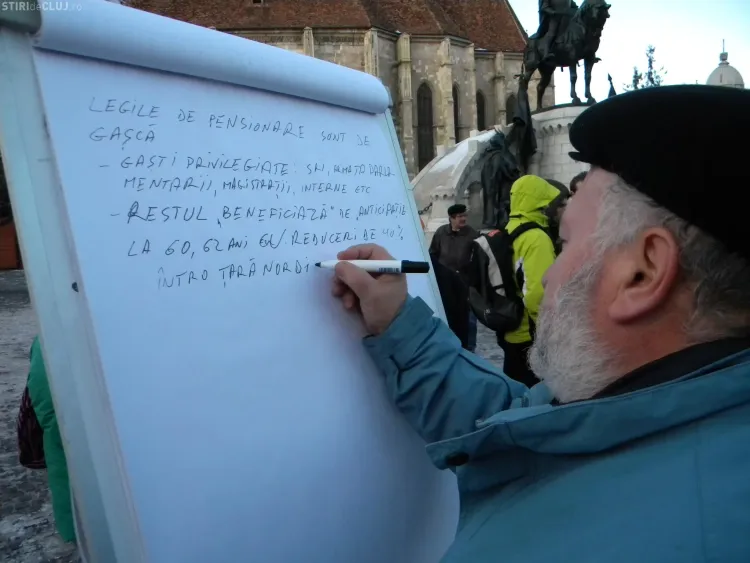 STIRIdeCLUJ.ro
LEGILE DE PENSIONARE SUNT DE
GAȘCĂ
- GASTI PRIVILEGIATE: SRI, ARMATA PARLA
MENTARII, MAGISTRAȚII, INTERNE ETC
- RESTUL „BENEFICIAZĂ" DE „ANTICIPATE
LA 60, 62 ANI CU REDUCERI DE 40%
ÎNTRO ȚARĂ NORDI